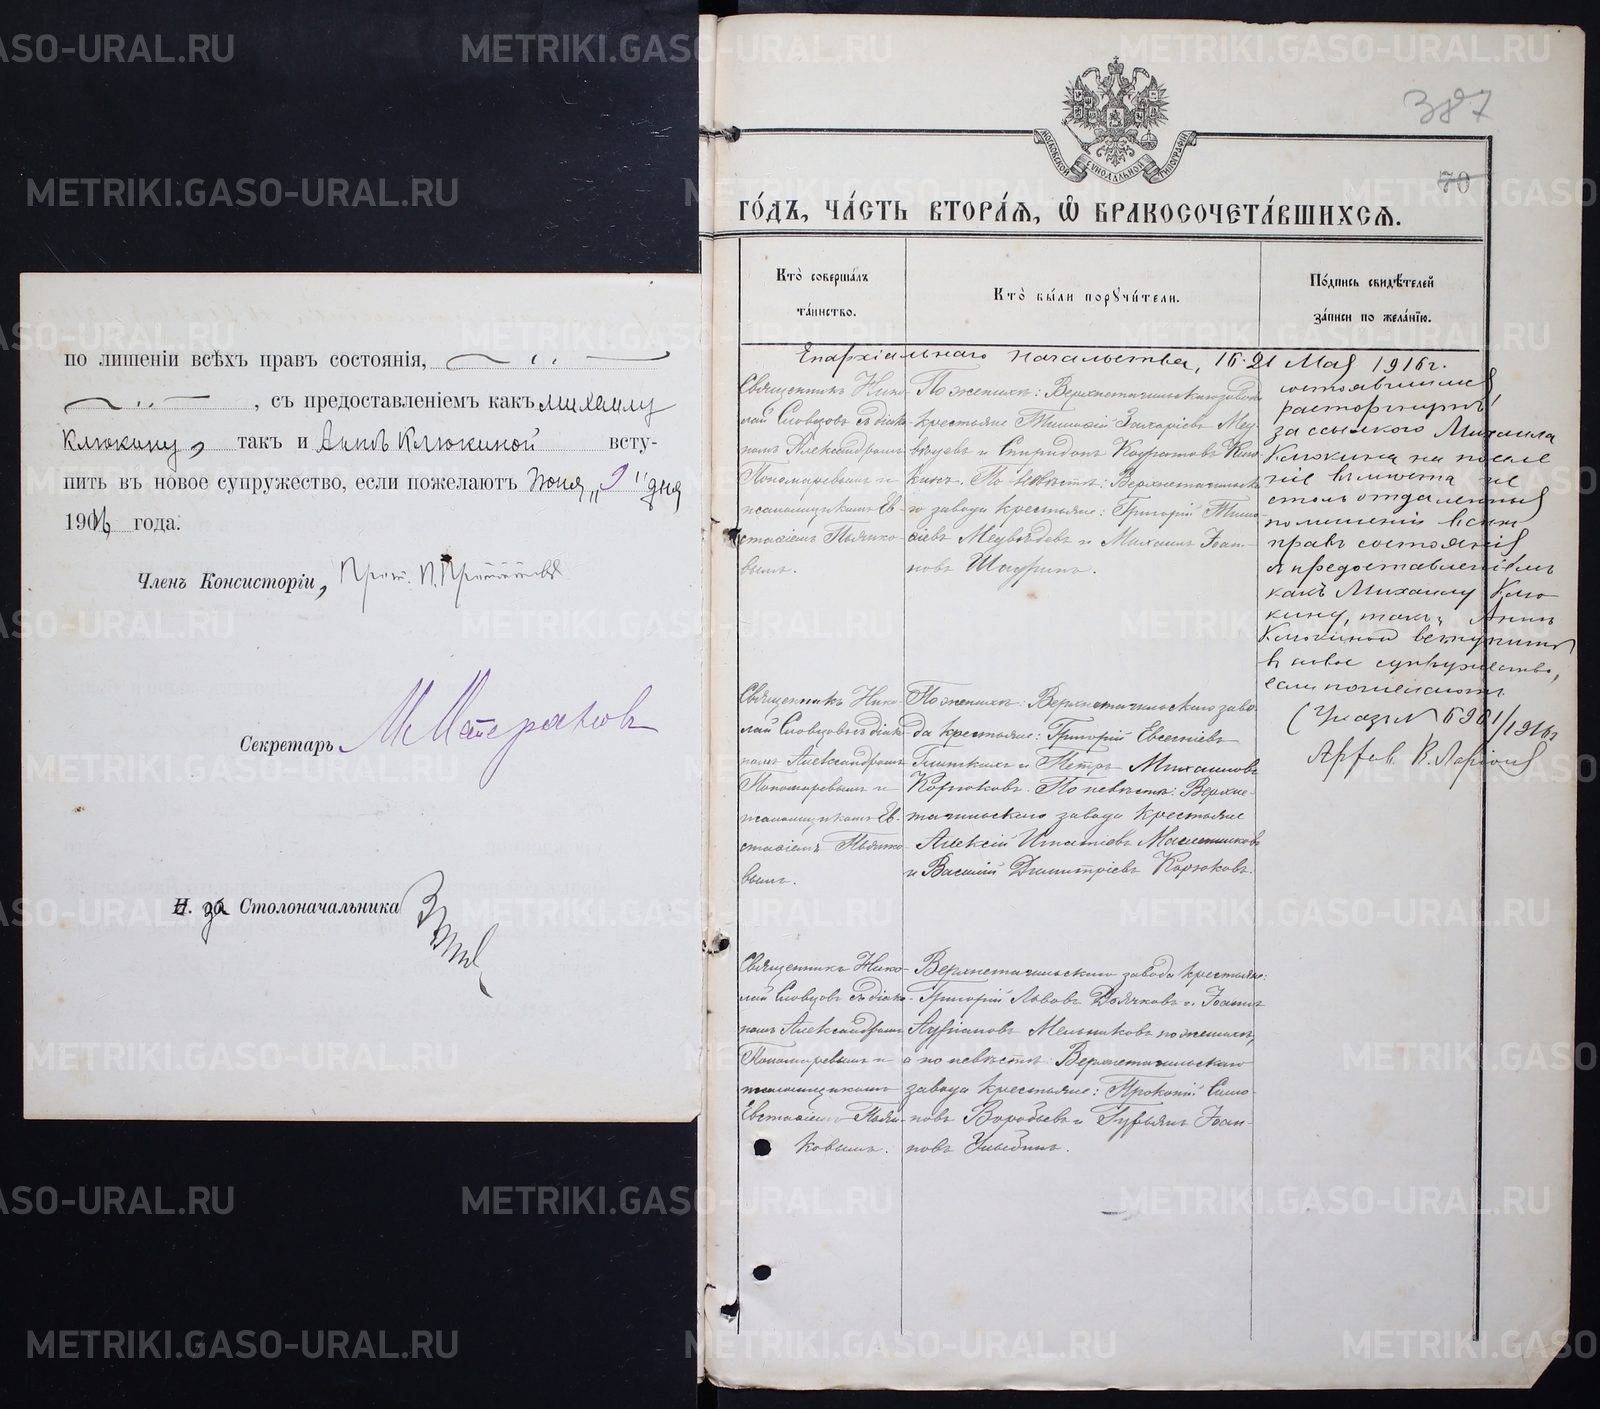 по лишеніи всѣхъ правъ состоянія,
, съ предоставленіемъ какъ Михаилу
Клюкину, такъ и Аннѣ Клюкиной всту-
пить въ новое супружество, если пожелаютъ Іюня „ 9 " дня
1916 года.
Членъ Консисторіи, Прот. П.
Секретарь
И. за Столоначальника
387
70
МОСКОВСКОЙ СѴНОДАЛЬНОЙ ТИПОГРАФІИ
ГО́ДЪ, ЧА́СТЬ ВТОРА́Ѧ, Ѡ҆ БРАКОСОЧЕТА́ВШИХСѦ.
Кто̀ соверша́лъ
та́инство.
Кто̀ бы́ли порꙋчи́тели.
По́дпись свидѣ́телей
за́писи по жела́нїю.
Епархіальнаго начальства, 16-21 Мая 1916 г.
Священникъ Нико-
лай Словцовъ съ діако-
номъ Александромъ
Пономаревымъ и
псаломщикомъ Ев-
стаѳіемъ Пьянко-
вымъ.
По женихѣ: Верхнетагильскаго завода
крестьяне Тимоѳей Захаріевъ Мед-
вѣдевъ и Спиридонъ Кондратовъ
По невѣстѣ: Верхнетагильска-
го завода крестьяне: Григорій Тимо-
ѳеевъ Медвѣдевъ и Михаилъ Іоан-
новъ
состоявшимся
расторгнутъ
за ссылкою Михаила
Клюкина на поселе-
ніе въ мѣста не
столь отдаленныя
по лишеніи всѣхъ
правъ состоянія
и предоставленіемъ
какъ Михаилу Клю-
кину, такъ и Аннѣ
Клюкиной вступить
въ новое супружество,
если пожелаютъ
(Указъ № 6981/1916 г
Священникъ Нико-
лай Словцовъ съ діако-
номъ Александромъ
Пономаревымъ и
псаломщикомъ Ев-
стаѳіемъ Пьянко-
вымъ.
По женихѣ: Верхнетагильскаго заво-
да крестьяне: Григорій Евгеніевъ
и Петръ Михаиловъ
Корюковъ. По невѣстѣ: Верхне-
тагильскаго завода крестьяне
Алексій Игнатіевъ Масленниковъ
и Василій Димитріевъ Корюковъ.
Священникъ Нико-
лай Словцовъ съ діако-
номъ Александромъ
Пономаревымъ и
псаломщикомъ
Евстаѳіемъ Пьян-
ковымъ.
Верхнетагильскаго завода крестьяне:
Григорій Львовъ Дьячковъ и Іоаннъ
Адріановъ Мельниковъ по женихѣ,
а по невѣстѣ: Верхнетагильскаго
завода крестьяне: Прокопій Симо-
новъ Воробьевъ и Гурьянъ Іоан-
новъ
METRIKI.GASO-URAL.RU